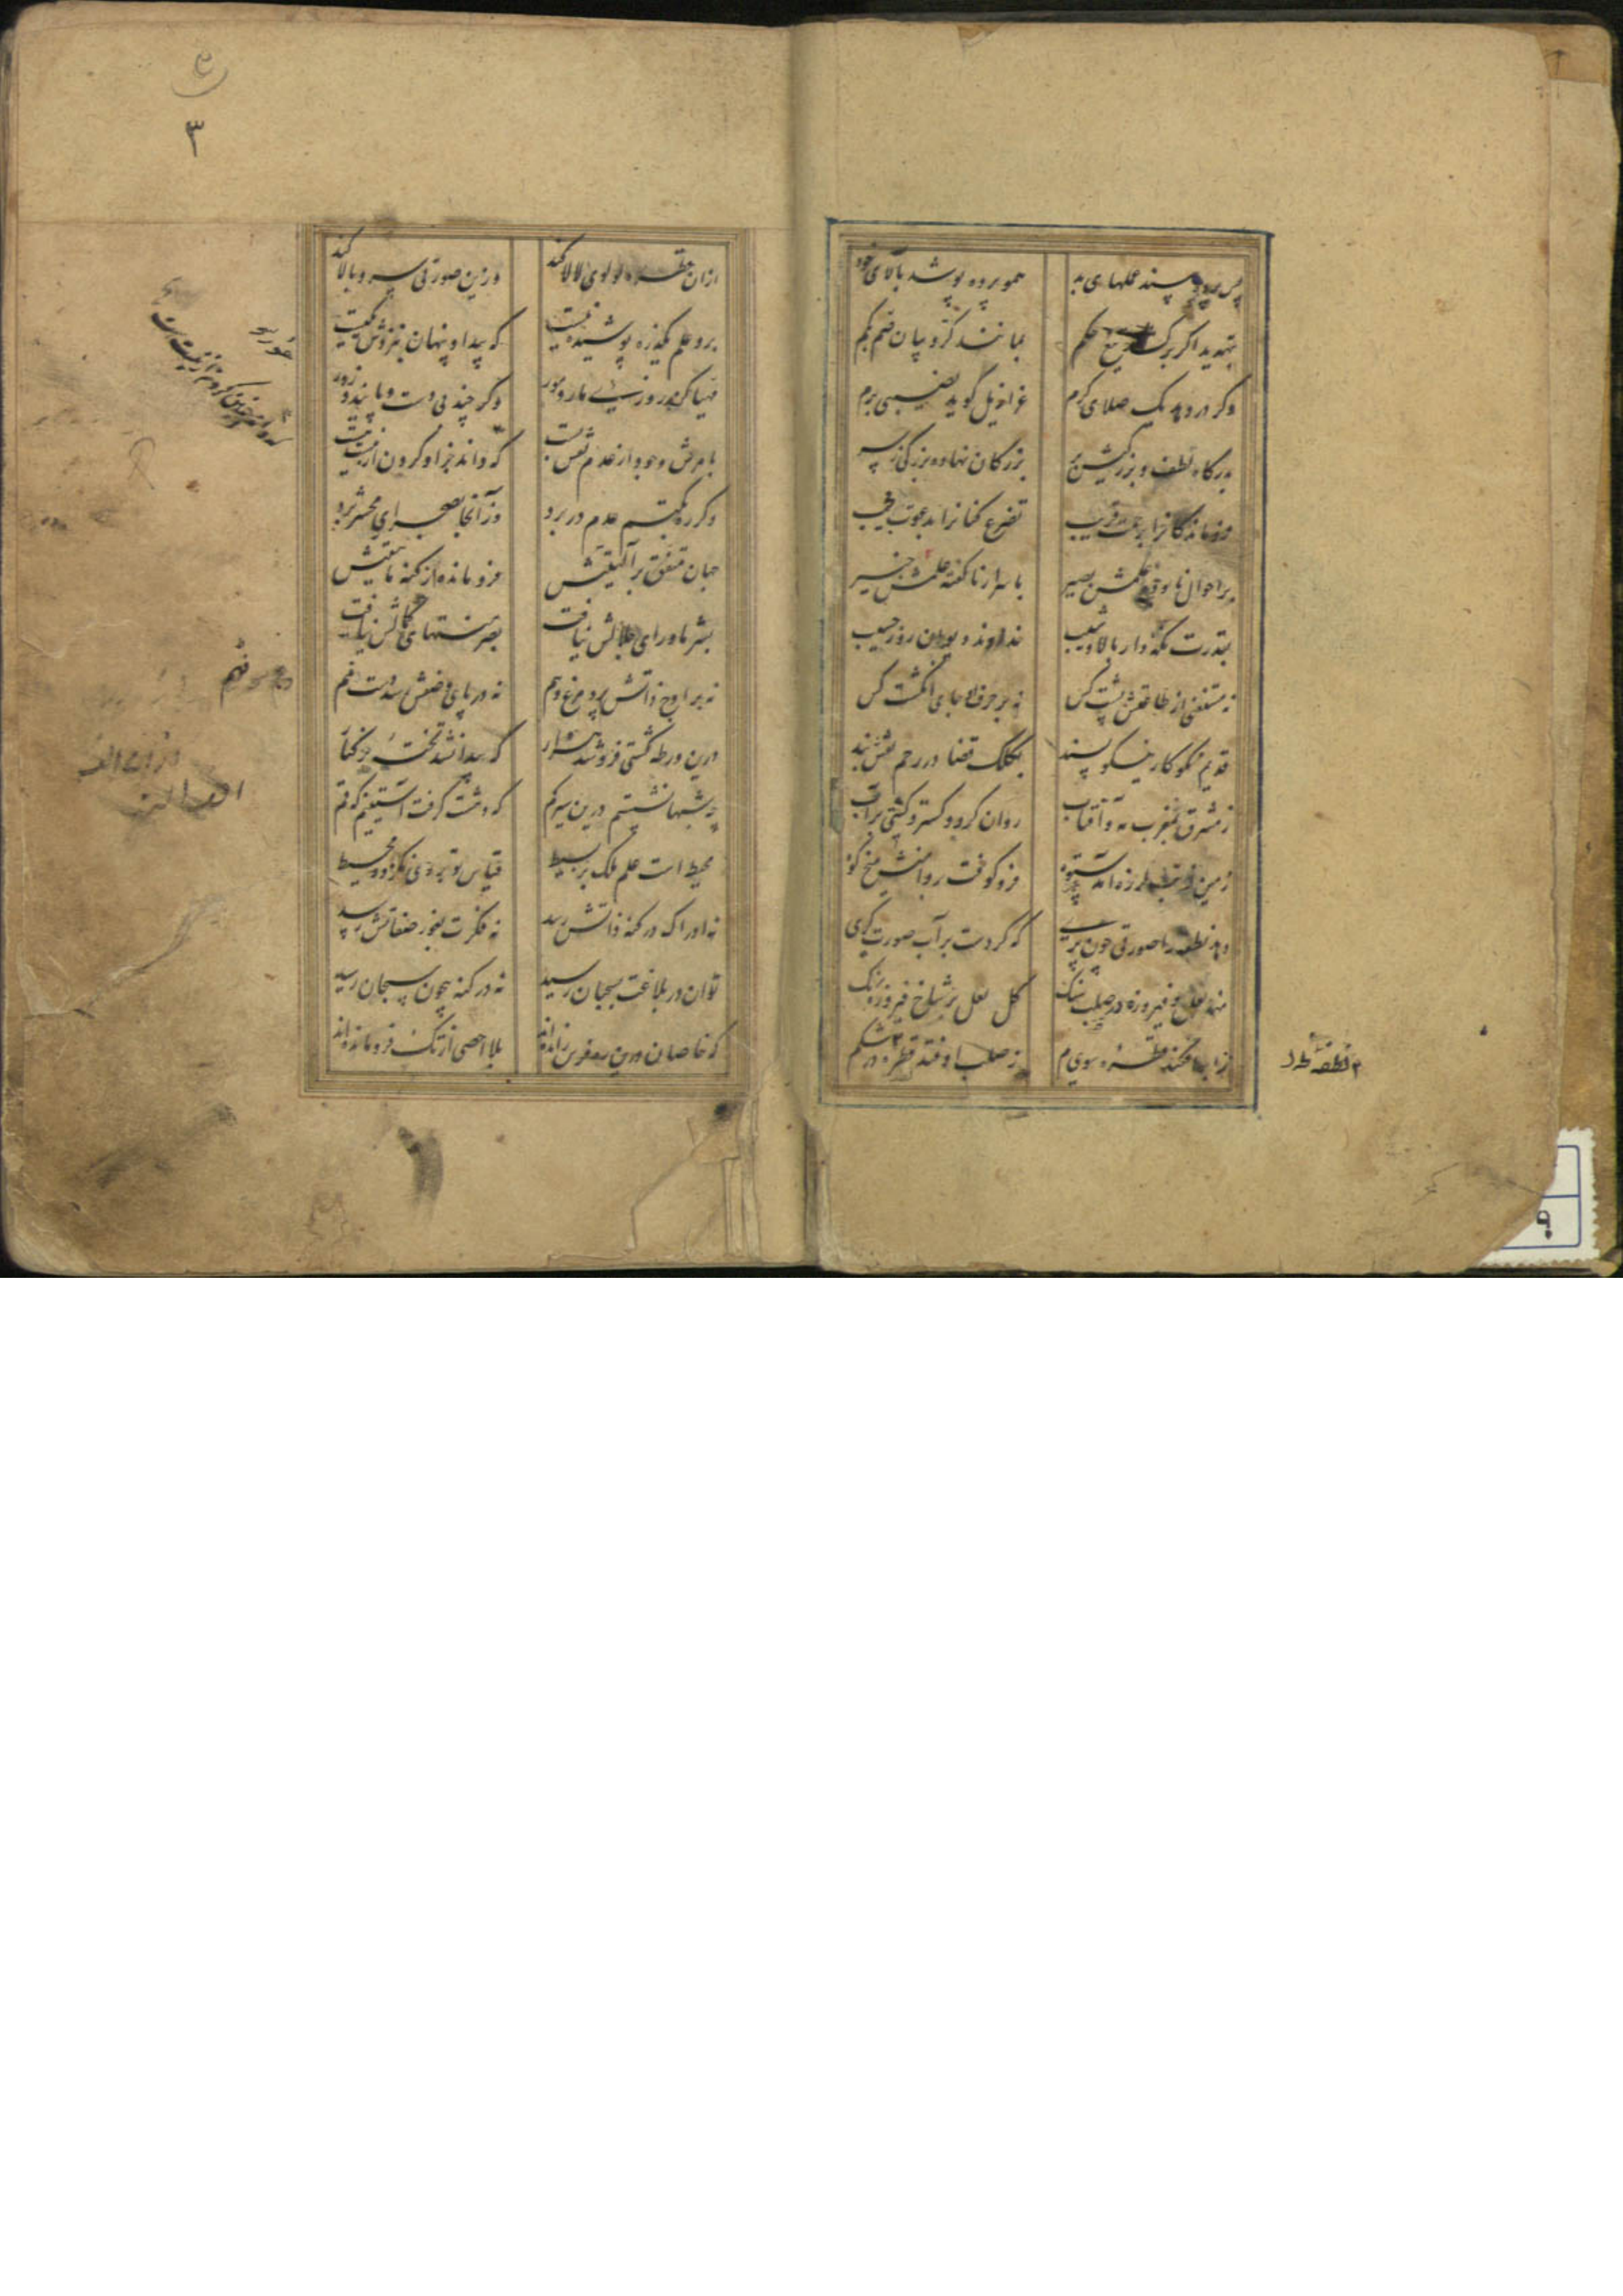 پس پرده بیند عملهای بد همو پرده پوشد بآلای خود
بتهدید اگر برکشد تیغ حکم بمانند کروبیان صم بکم
وکر در دهد یک صلای کرم عزازیل گوید نصیبی برم
بدرکاه لطف و بزرکیش بر بزرکان نهاده بزرکی ز سر
فروماندکانرا برحمت قریب تضرع کنانرا بدعوت مجیب
بر احوال نابوده علمش بصیر باسرار ناکفته علمش خبیر
بقدرت نکه دار بالا و شیب خداوند دیوان روز حسیب
نه مستغنی از طاعتش پشت کس نه بر حرف او جای انکشت کس
قدیم نکوکار نیکو پسند بکلک قضا در رحم نقش بند
ز مشرق بمغرب مه و آفتاب روان کرد و کسترد کیتی بر آب
زمین از تب لرزه آمد ستوه فرو کوفت بر دامنش میخ کوه
دهد نطفه را صورتی چون پری که کردست بر آب صورت کری
نهد لعل و فیروزه در صلب سنک کل لعل بر شاخ فیروزه رنک
ز ابر افکند قطره سوی یم ز صلب اوفتد قطره در شکم
نطفه
از آن قطره لولوی لالا کند وزین صورتی سرو بالا کند
برو علم یکذره پوشیده نیست که پیدا و پنهان بنزدش یکیست
مهیا کن روزی مار و مور وکر چند بی دست و پایند و زور
بامرش وجود از عدم نقش بست که داند جز او کردن از نیست هست
دکر ره بکتم عدم در برد وز آنجا بصحرای محشر برد
جهان متفق بر آلهیتش فرو مانده از کنه ماهیتش
بشر ماورای جلالش نیافت بصر منتهای کمالش نیافت
نه بر اوج ذاتش پرد مرغ وهم نه در پای وصفش رسد دست فهم
درین ورطه کشتی فرو شد هزار که پیدا نشد تخته بر کنار
چه شبها نشستم درین سیر کم که دهشت کرفت آستینم که قم
محیط است علم ملک بر بسیط قیاس تو بر وی نکردد محیط
نه ادراک در کنه ذاتش رسد نه فکرت بغور صفاتش رسد
توان در بلاغت بسحبان رسید نه در کنه بیچون سبحان رسید
که خاصان درین ره فرس رانده اند بلا احصی از تک فرو مانده اند
۳